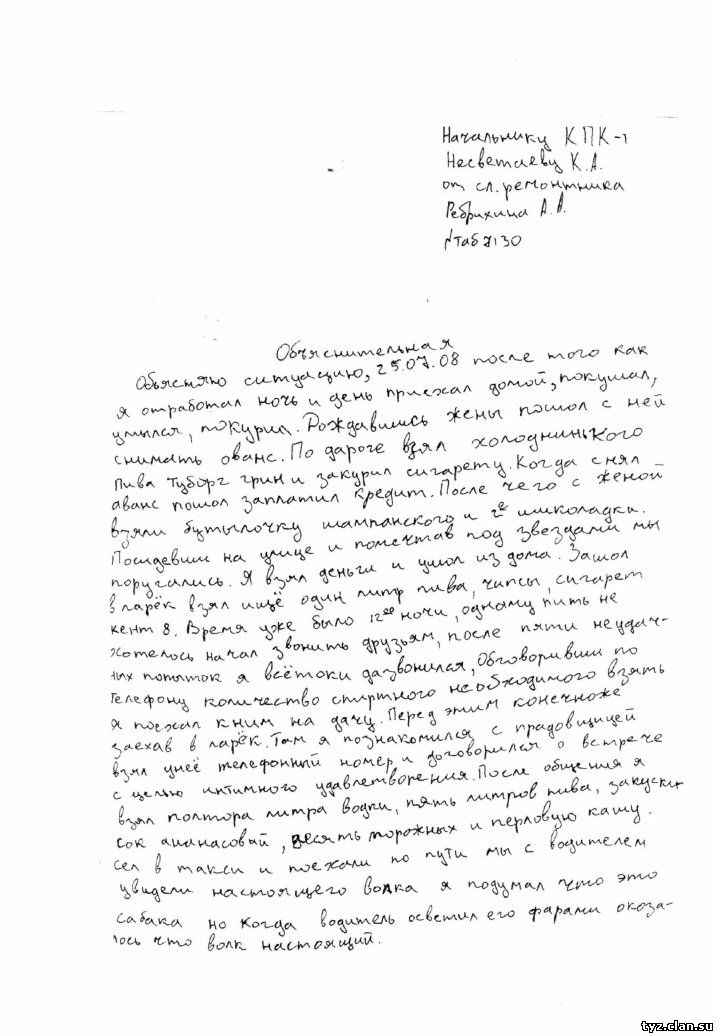 Начальнику КПК-1
Несветаеву К.А.
от сл. ремонтника
Ребрихина А.А.
№таб 7130
Объяснительная
Объястяю ситуацию, 25.07.08 после того как
я отработал ночь и день приехал домой, покушал,
умылся, покурил. Рождавшись жены пошол с ней
снимать ованс. По дароге взял холоднинького
пива Туборг грин и закурил сигарету. Когда снял
аванс пошол заплатил кредит. После чего с женой
взяли бутылочку шампанского и 2е шиколадки.
Посидевши на улице и помечтав под звездами мы
поругались. Я взял деньги и ушол из дома. Зашол
в ларёк взял ищё один литр пива, чипсы, сигарет
кент 8. Время уже было 1200 ночи, одному пить не
хотелось начал звонить друзьям, после пяти неудач-
ных попыток я всётоки дазвонился, Обговоривши по
телефону количество спиртного необходимого взять
я поехал к ним на дачу. Перед этим конечноже
заехав в ларёк. Там я познакомился с прадовщицей
взял унеё телефонный номер и договорился о встрече
с целью интимного удавлетворения. После общения я
взял полтора литра водки, пять литров пива, закуски
сок ананасовый, десять морожных и перловую кашу.
сел в такси и поехали по пути мы с водителем
увидели настоящего волка я подумал что это
сабака но когда водитель осветил его фарами оказа-
лось что волк настоящий.
tyz.clan.su